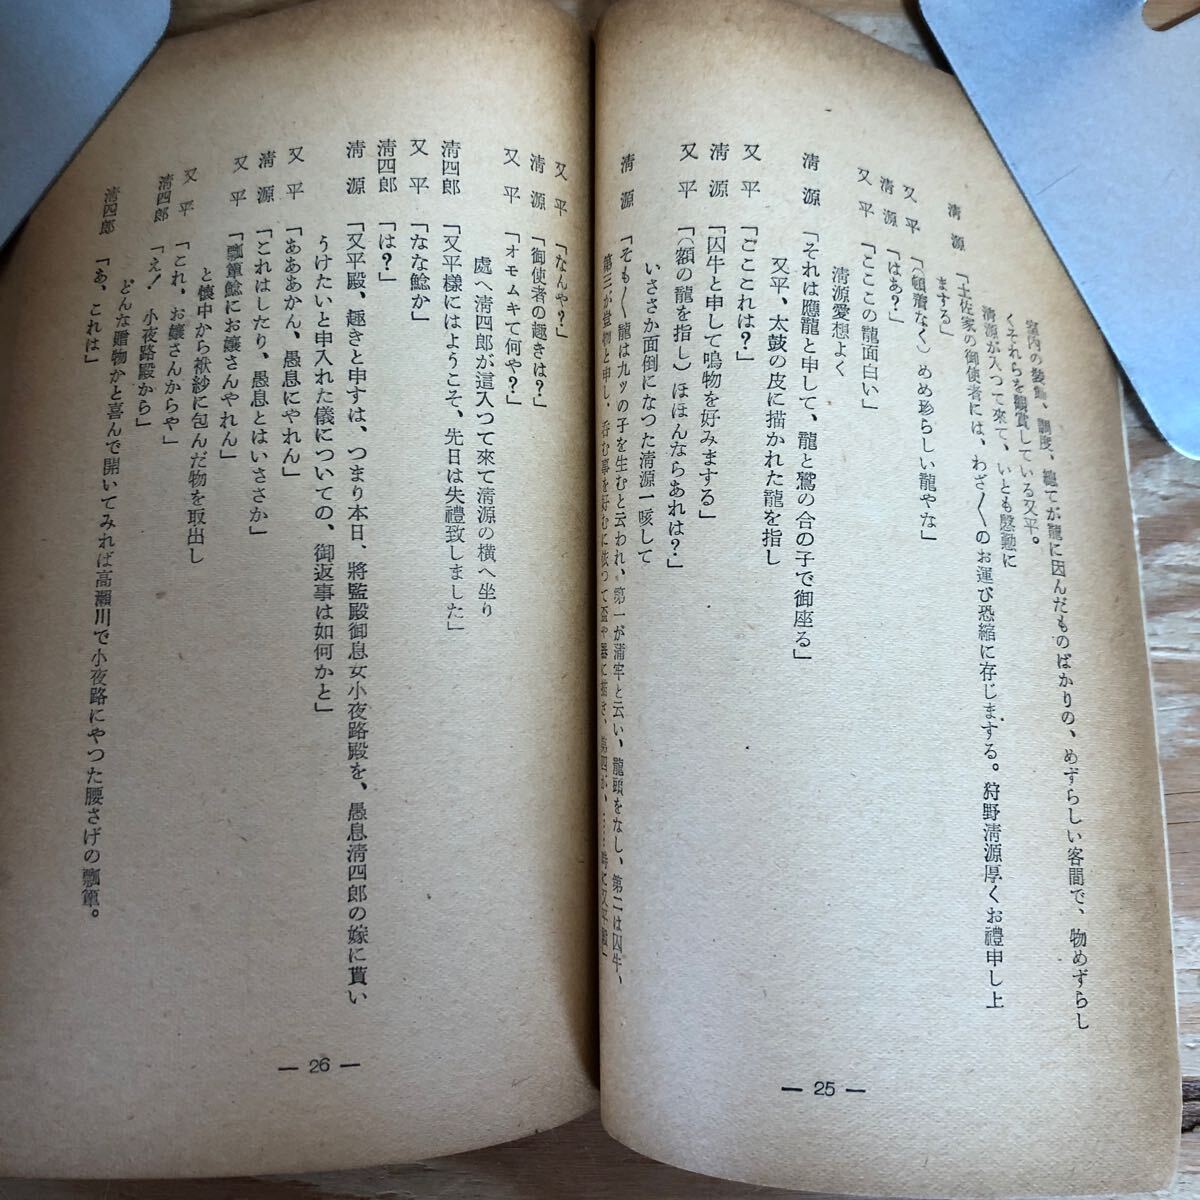 室内の装飾、調度、総てが龍に因んだものばかりの、めずらしい客間で、物めずらし
くそれらを観賞している又平。
清源が入つて来て、いとも慇懃に
清　源　「土佐家の御使者には、わざ〱のお運び恐縮に存じまする。狩野清源厚くお禮申し上
まする」
又　平　「（頓着なく）めめ珍らしい龍やな」
清　源　「はあ？」
又　平　「ここの龍面白い」
清源愛想よく
清　源　「それは應龍と申して、龍と鷲の合の子で御座る」
又平、太鼓の皮に描かれた龍を指し
又　平　「ごここれは？」
清　源　「囚牛と申して鳴物を好みまする」
又　平　「（額の龍を指し）ほほんならあれは？」
いささか面倒になつた清源一咳して
清　源　「そも〱龍は九ッの子を生むと云われ、第一が蒲牢と云い、龍頭をなし、第二は囚牛、
第三が饕物と申し、呑む事を好むに依つて盃や器に描き、第四が、……時に又平殿」
— 25 —
又　平　「なんや？」
清　源　「御使者の趣きは？」
又　平　「オモムキて何や？」
處へ清四郎が這入つて來て清源の横へ坐り
清四郎　「又平様にはようこそ、先日は失禮致しました」
又　平　「なな鯰か」
清四郎　「は？」
清　源　「又平殿、趣きと申すは、つまり本日、將監殿御息女小夜路殿を、愚息清四郎の嫁に貰い
うけたいと申入れた儀についての、御返事は如何かと」
又　平　「あああかん、愚息にやれん」
清　源　「これはしたり、愚息とはいささか」
又　平　「瓢箪鯰にお嬢さんやれん」
と懐中から袱紗に包んだ物を取出し
又　平　「これ、お嬢さんからや」
清四郎　「え！　小夜路殿から」
どんな贈物かと喜んで開いてみれば高瀬川で小夜路にやつた腰さげの瓢箪。
清四郎　「あ、これは」
— 26 —